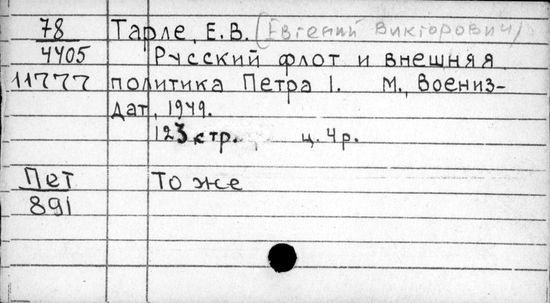 78 Тарле, Е.В. (Евгений Викторович)
4405 Русский флот и внешняя
11777 политика Петра I. М., Воениз-
дат, 1949.
123 стр. ц. 4р.
Пет То же
891